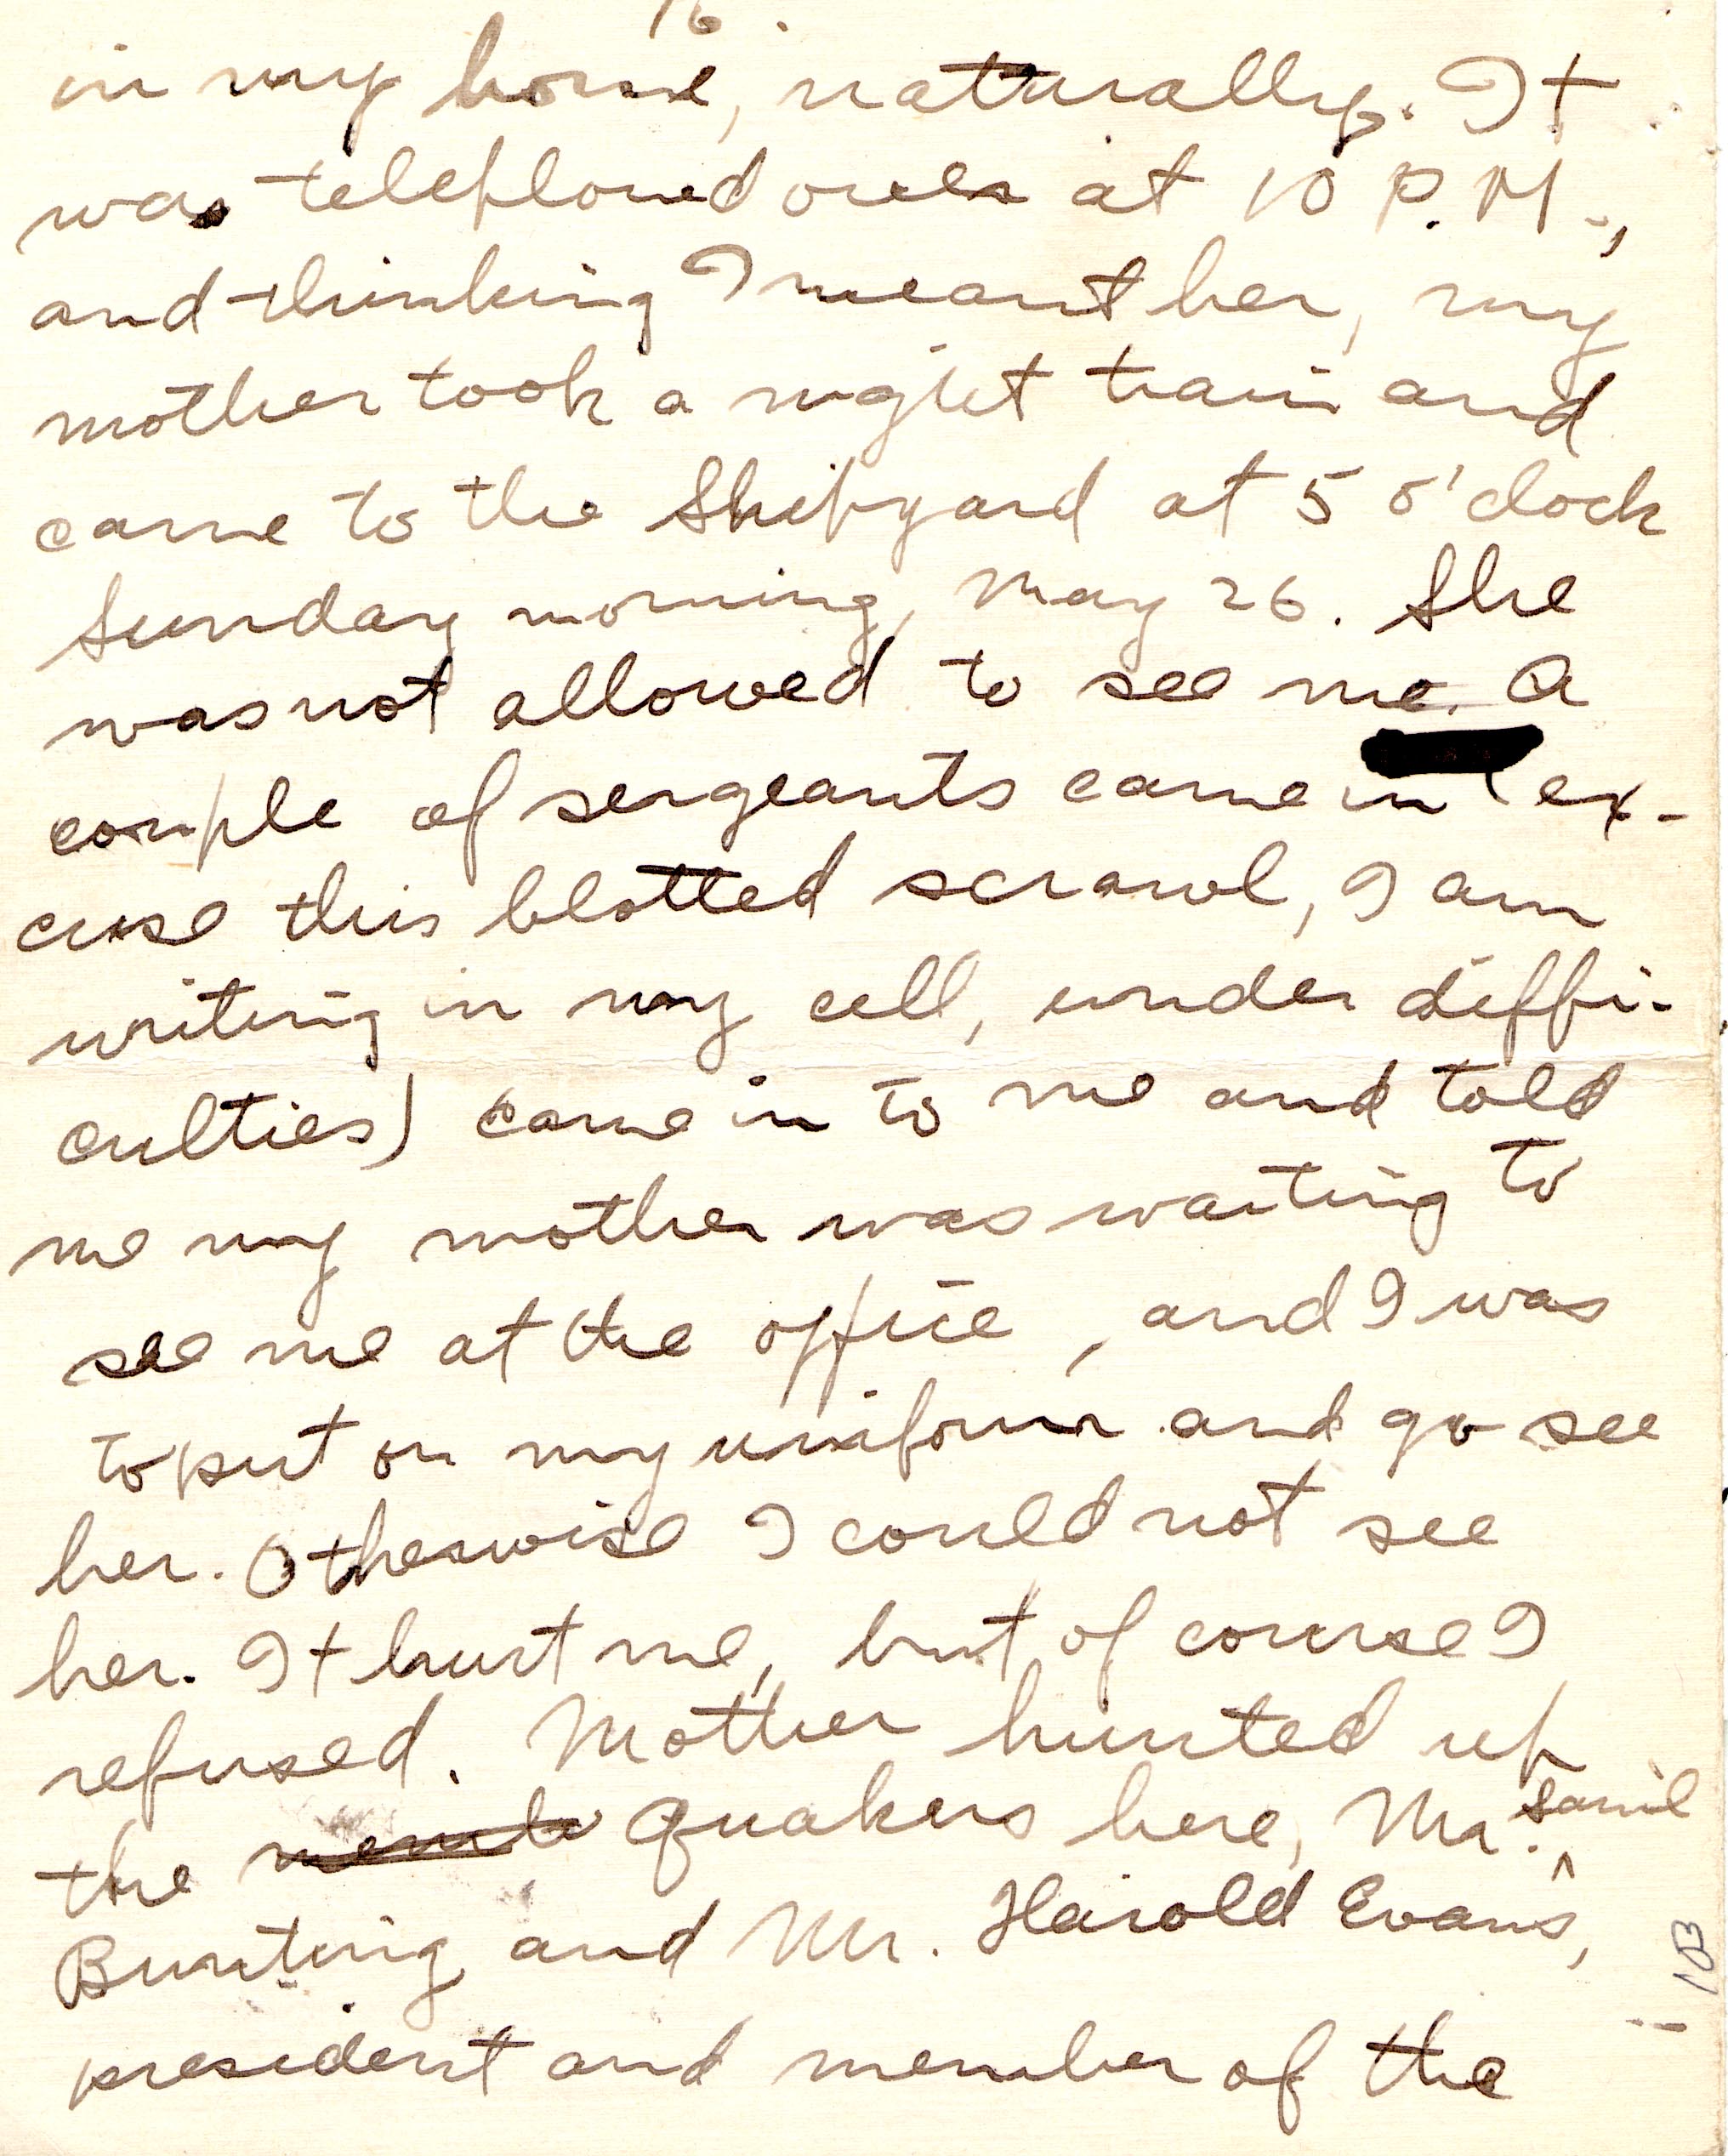 16.
in my home, naturally. It
was telephoned over at 10 P.M.,
and thinking I meant her, my
mother took a night train and
came to the Shipyard at 5 o'clock
Sunday morning, May 26. She
was not allowed to see me. A
couple of sergeants came in (ex-
cuse this blotted scrawl, I am
writing in my cell, under diffi-
culties) came in to me and told
me my mother was waiting to
see me at the office, and I was
to put on my uniform and go see
her. Otherwise I could not see
her. It hurt me, but of course I
refused. Mother hunted up
the Quakers here, Mr. Sam'l
Bunting and Mr. Harold Evans,
president and member of the